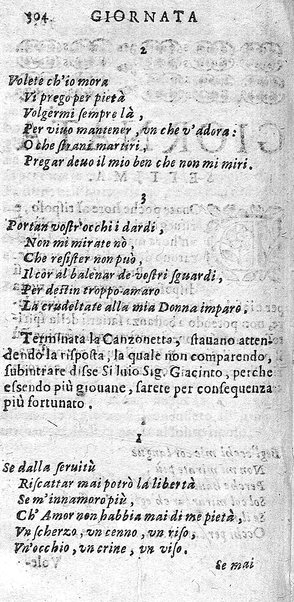 304 GIORNATA
2
Volete ch'io mora
Vi prego per pietà
Volgermi sempre là,
Per viuo mantener, vn che v'adora:
O che strani martiri,
Pregar deuo il mio ben che non mi miri.
3
Portan vostr'occhi i dardi,
Non mi mirate nò,
Che resister non può,
Il còr al balenar de vostri sguardi,
Per destin troppo amaro
La crudeltate alla mia Donna imparò.
Terminata la Canzonetta, stauano atten-
dendo la risposta, la quale non comparendo,
subintrare disse Siluio Sig. Giacinto, perche
essendo più giouane, sarete per consequenza
più fortunato.
1
Se dalla seruitù
Riscattar mai potrò la libertà
Se m'innamoro più,
Ch' Amor non habbia mai di me pietà,
Vn scherzo, vn cenno, vn riso,
Vn'occhio, vn crine, vn viso.
Se mai